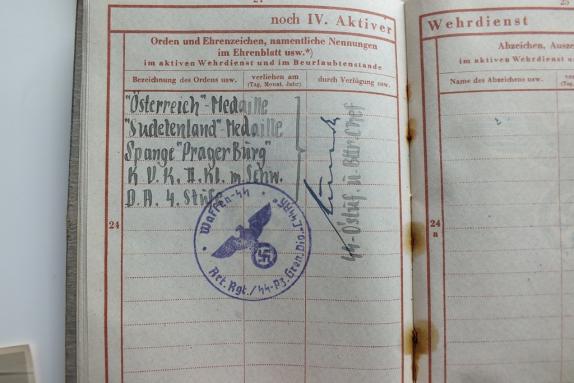 noch IV. Aktiver
Orden und Ehrenzeichen, namentliche Nennungen
im Ehrenblatt usw.*)
im aktiven Wehrdienst und im Beurlaubtenstande
Bezeichnung des Ordens usw.
verliehen am
(Tag, Monat, Jahr)
durch Verfügung usw.
"Österreich"-Medaille
"Sudetenland"-Medaille
Spange "Prager Burg"
K. V. K. II. Kl. m. Schw.
D. A. 4. Stufe
24
Waffen-SS
SS-O'stuf. u. Bttr.-Chef
Wehrdienst
Abzeichen, Ausze
im aktiven Wehrdienst u
Name des Abzeichens usw.
24
a